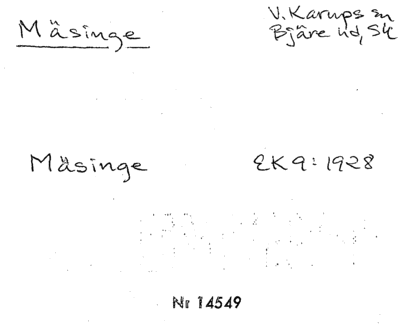 Mäsinge
V. Karups sn
Bjäre hd, Sk
Mäsinge
EK 9: 1928
Nr 14549